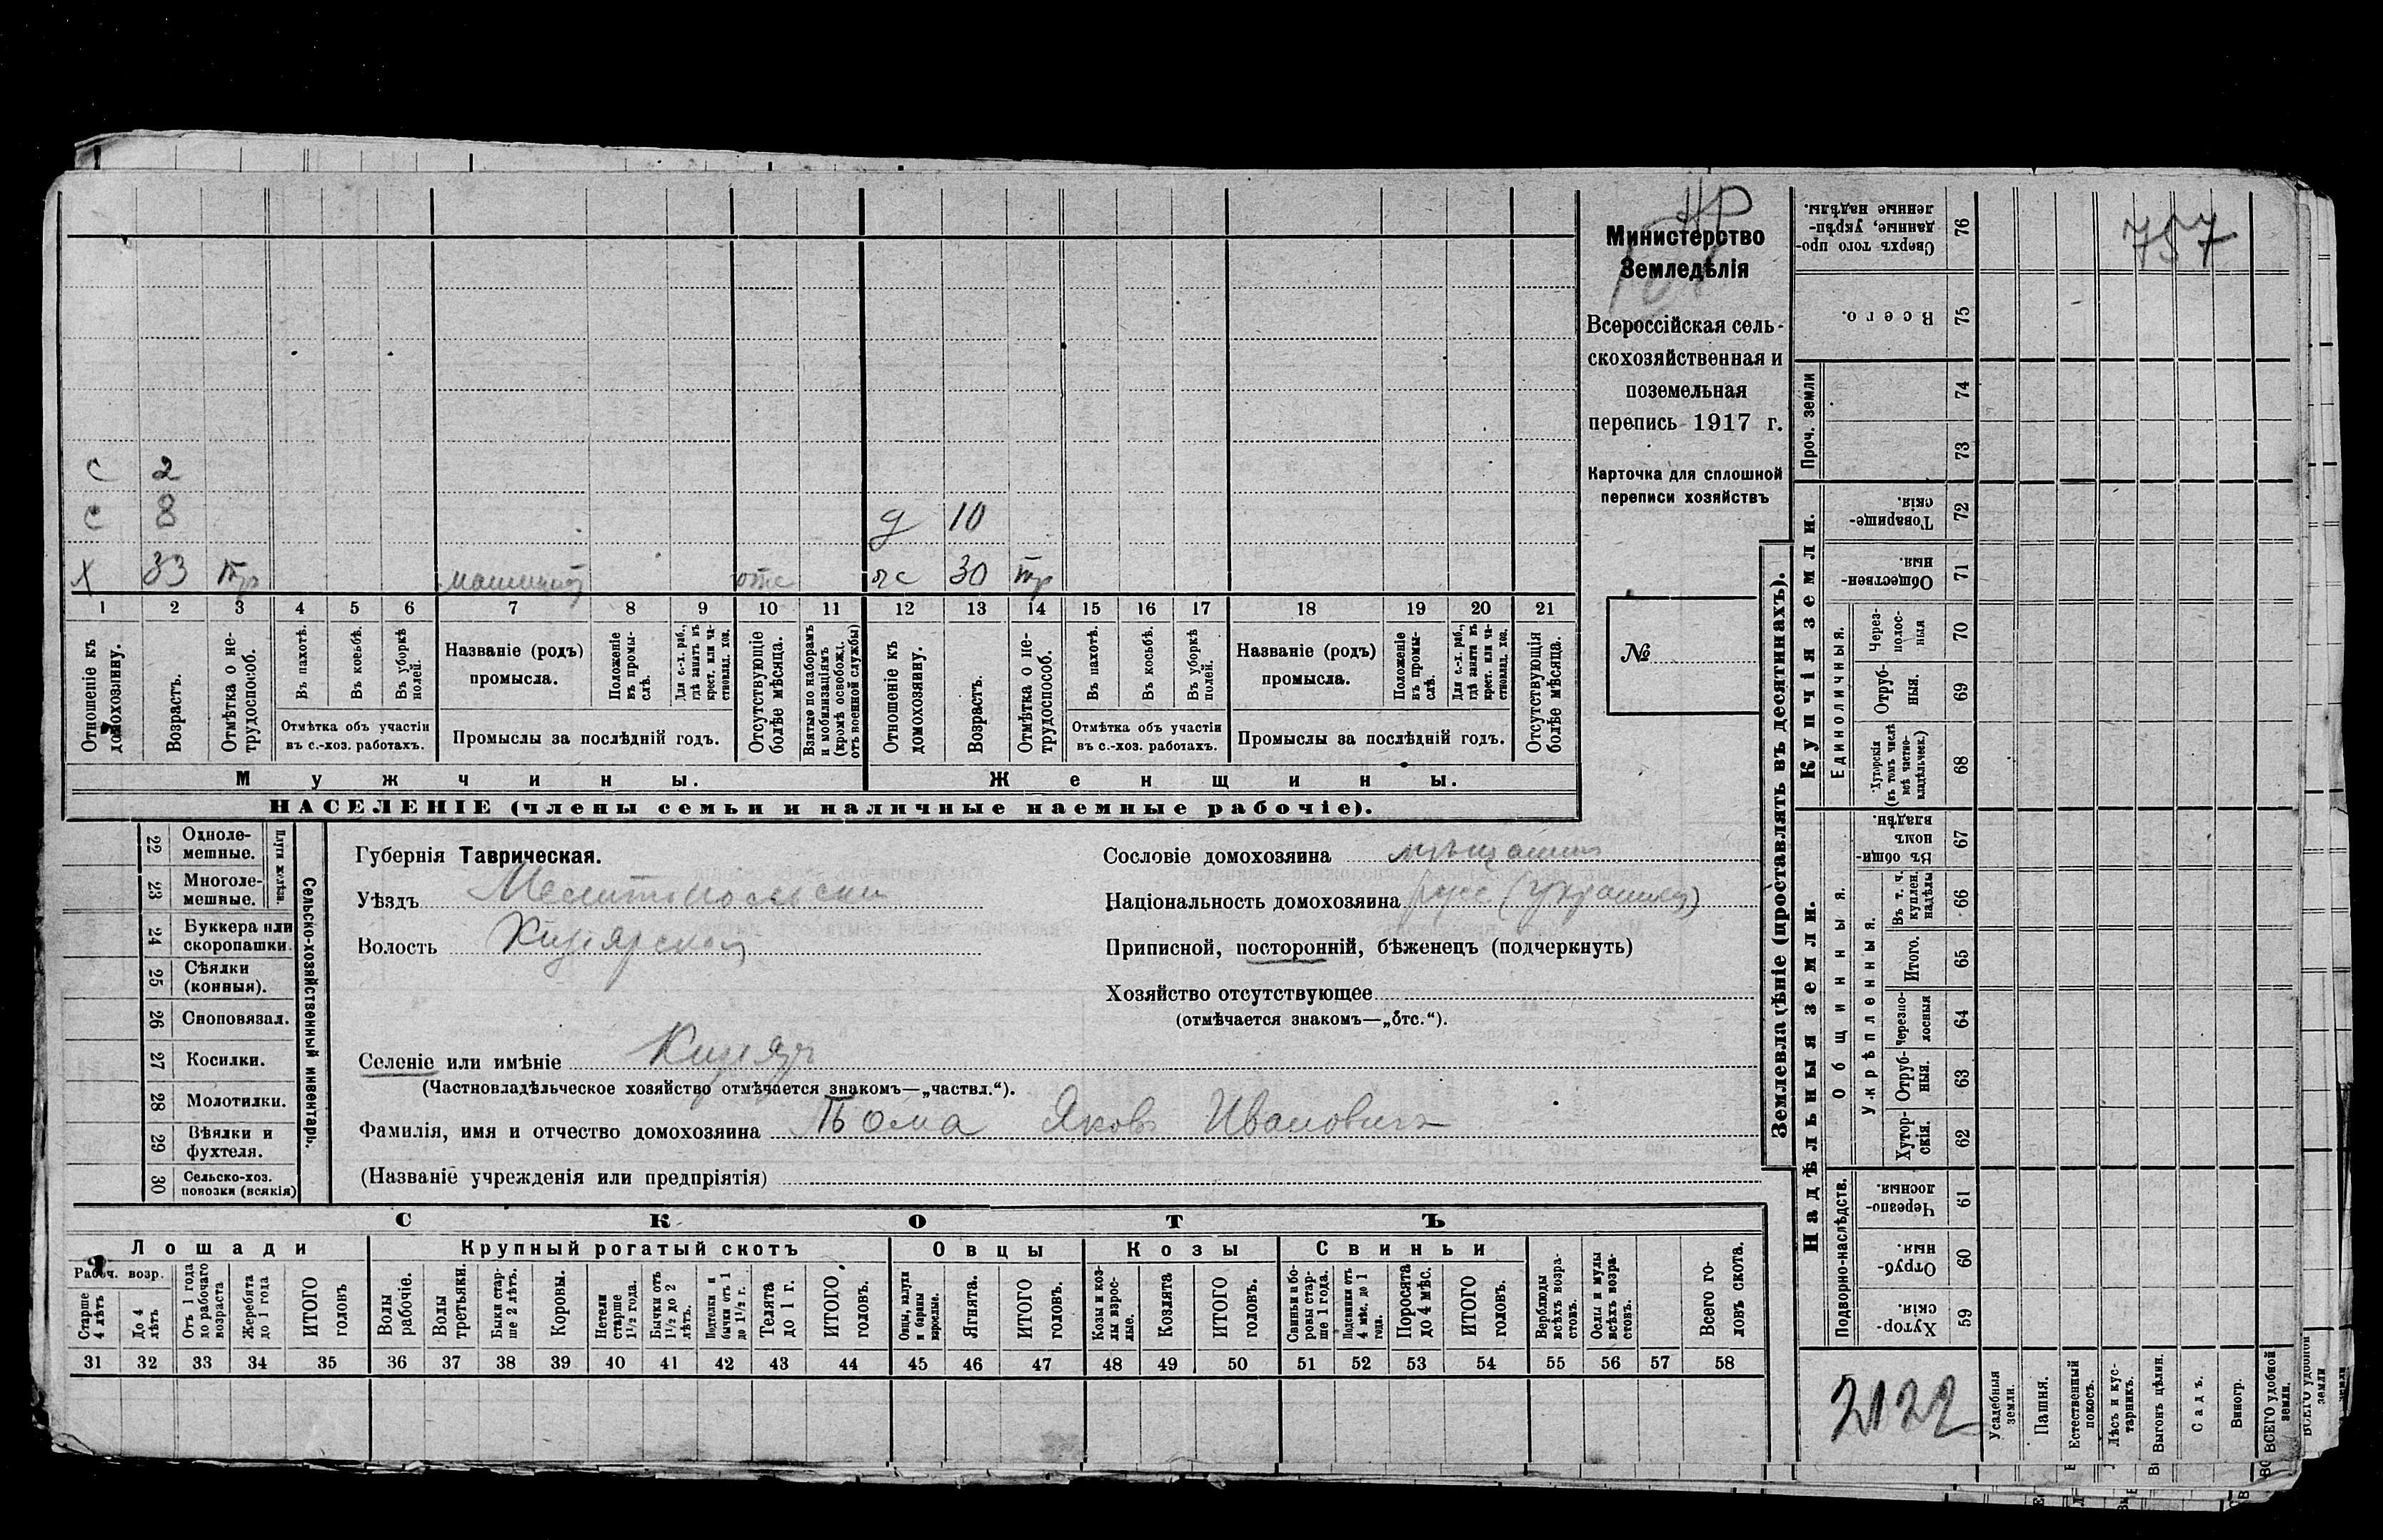 НР
757
Министерство
Земледѣлія
Всероссійская сель-
скохозяйственная и
поземельная
перепись 1917 г.
Карточка для сплошной
переписи хозяйствъ
№
с 2
с 8 д 10
х 33 тр машинист отс жс 30 тр
1 2 3 4 5 6 7 8 9 10 11 12 13 14 15 16 17 18 19 20 21
Отношеніе къ домохозяину.
Возрастъ.
Отмѣтка о не-трудоспособ.
Въ пахотѣ.
Въ косьбѣ.
Въ уборкѣ полей.
Отмѣтка объ участіи
въ с.-хоз. работахъ.
Названіе (родъ)
промысла.
Положеніе въ промы-слѣ.
Для с.-х. раб., гдѣ занятъ въ крест. или ча-стновлад. хоз.
Промыслы за послѣдній годъ.
Отсутствующіе болѣе мѣсяца.
Взятые по наборамъ и мобилизаціямъ (кромѣ освобожд. отъ военной службы)
Отношеніе къ домохозяину.
Возрастъ.
Отмѣтка о не-трудоспособ.
Въ пахотѣ.
Въ косьбѣ.
Въ уборкѣ полей.
Отмѣтка объ участіи
въ с.-хоз. работахъ.
Названіе (родъ)
промысла.
Положеніе въ промы-слѣ.
Для с.-х. раб., гдѣ занята въ крест. или ча-стновлад. хоз.
Промыслы за послѣдній годъ.
Отсутствующія болѣе мѣсяца.
Мужчины. Женщины.
НАСЕЛЕНІЕ (члены семьи и наличные наемные рабочіе).
22 Одноле-мешные.
23 Многоле-мешные.
Плуги желѣзн.
24 Буккера или скоропашки.
25 Сѣялки (конныя).
26 Сноповязал.
27 Косилки.
28 Молотилки.
29 Вѣялки и фухтеля.
30 Сельско-хоз. повозки (всякія)
Сельско-хозяйственный инвентарь.
Губернія Таврическая.
Уѣздъ Мелитопольски
Волость Кизіярской
Селеніе или имѣніе Кизіяръ
(Частновладѣльческое хозяйство отмѣчается знакомъ—„частвл.“).
Фамилія, имя и отчество домохозяина Яковъ Ивановичъ
(Названіе учрежденія или предпріятія)
Сословіе домохозяина мѣщанин
Національность домохозяина русс (украинец)
Приписной, посторонній, бѣженецъ (подчеркнуть)
Хозяйство отсутствующее
(отмѣчается знакомъ—„отс.“).
СКОТЪ
Лошади Крупный рогатый скотъ Овцы Козы Свиньи
Рабоч. возр.
Старше 4 лѣтъ
До 4 лѣтъ
Отъ 1 года до рабочаго возраста
Жеребята до 1 года
ИТОГО головъ
Волы рабочіе.
Волы третьяки.
Быки стар-ше 2 лѣтъ.
Коровы.
Нетели старше 1½ года.
Бычки отъ 1½ до 2 лѣтъ.
Подтелки и бычки отъ 1 до 1½ г.
Телята до 1 г.
ИТОГО головъ.
Овцы, валухи и бараны взрослые.
Ягнята.
ИТОГО головъ.
Козы и коз-лы взрос-лые.
Козлята
ИТОГО головъ.
Свиньи и бо-ровы стар-ше 1 года.
Подсвинки отъ 4 мѣс. до 1 года.
Поросята до 4 мѣс.
ИТОГО головъ.
Верблюды всѣхъ возра-стовъ.
Ослы и мулы всѣхъ возра-стовъ.
Всего го-ловъ скота.
31 32 33 34 35 36 37 38 39 40 41 42 43 44 45 46 47 48 49 50 51 52 53 54 55 56 57 58
Землевладѣніе (проставлять въ десятинахъ).
Надѣльныя земли. Купчія земли.
Проч. земли
Подворно-наслѣдств.
Общинныя.
Укрѣпленныя.
Единоличныя.
Сверхъ того про-данные, укрѣп-ленные надѣлы. 76
Всего. 75
74
73
Товарище-скія. 72
Обществен-ныя. 71
Через-полос-ныя 70
Отруб-ныя. 69
Хуторскія (въ томъ числѣ всѣ частно-владѣльческ.) 68
Въ общи-номъ владѣн. 67
Въ т. ч. куплен. надѣлы 66
Итого. 65
Черезпо-лосныя 64
Отруб-ныя. 63
Хутор-скія. 62
Черезпо-лосныя. 61
Отруб-ныя. 60
Хутор-скія 59
2122
Усадебныя земли.
Пашня.
Естественный покосъ.
Лѣсъ и кус-тарникъ.
Выгонъ цѣлин.
Садъ.
Виногр.
ВСЕГО удобной земли.
ВСЕГО удобной земли